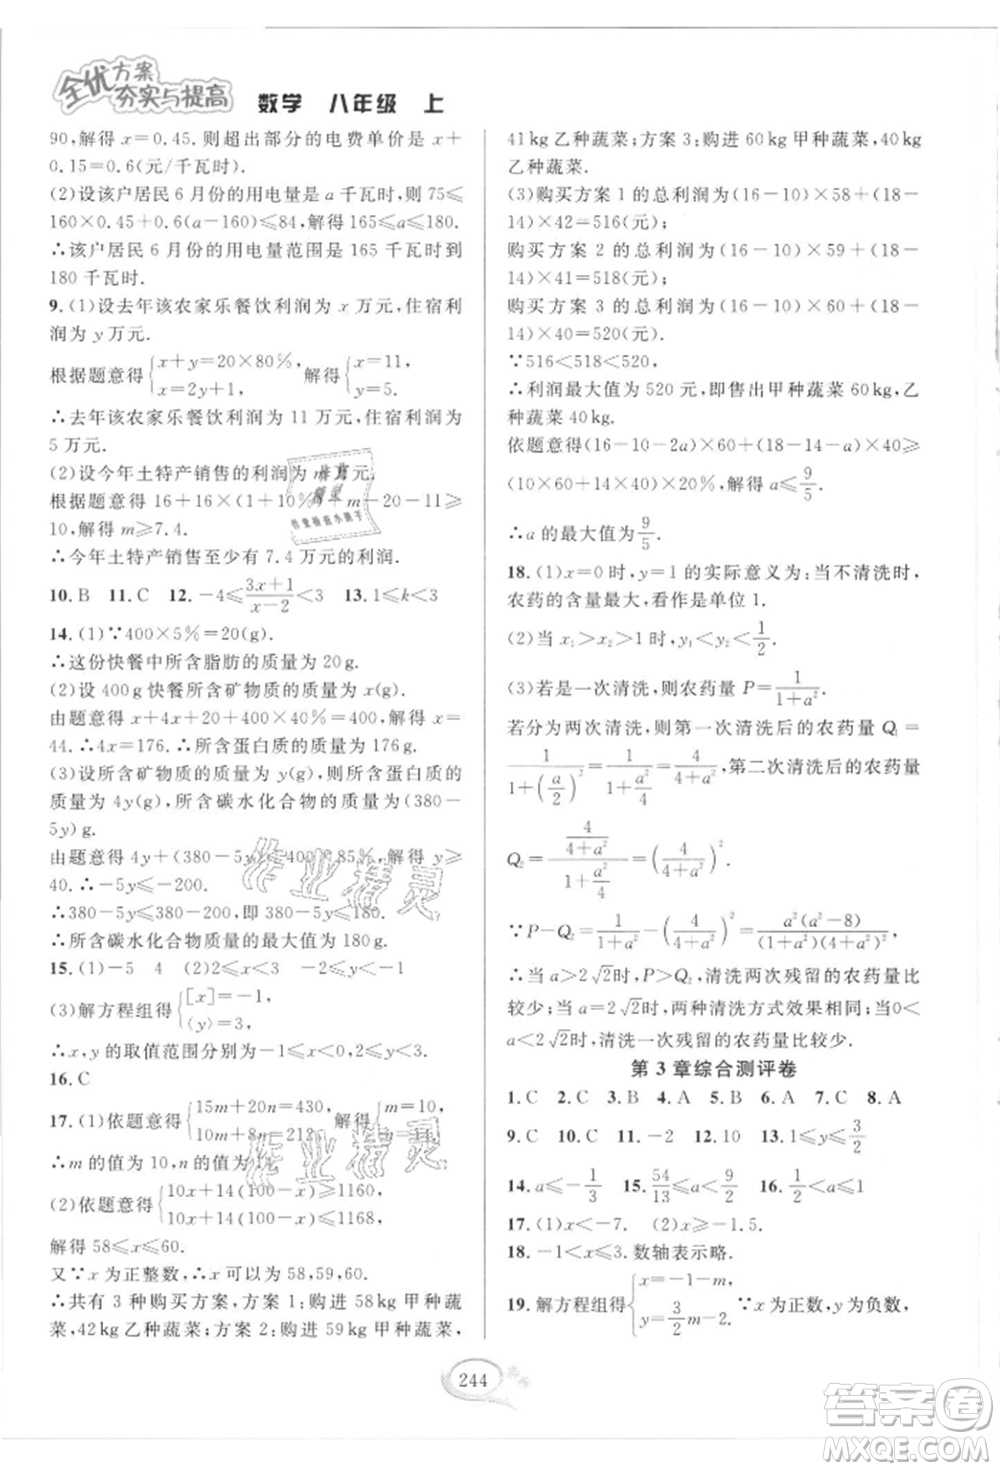 全优方案
夯实与提高 数学 八年级 上
90,解得 x=0.45. 则超出部分的电费单价是 x+
0.15=0.6(元/千瓦时).
(2)设该户居民 6 月份的用电量是 a 千瓦时,则 75≤
160×0.45+0.6(a-160)≤84,解得 165≤a≤180.
∴该户居民 6 月份的用电量范围是 165 千瓦时到
180 千瓦时.
9. (1)设去年该农家乐餐饮利润为 x 万元,住宿利
润为 y 万元.
根据题意得{x+y=20×80%, x=2y+1, 解得{x=11, y=5.
∴去年该农家乐餐饮利润为 11 万元,住宿利润为
5 万元.
(2)设今年土特产销售的利润为 m 万元.
根据题意得 16+16×(1+10%)+m-20-11≥
10,解得 m≥7.4.
∴今年土特产销售至少有 7.4 万元的利润.
10. B 11. C 12. -4≤(3x+1)/(x-2)<3 13. 1≤k<3
14. (1)∵400×5%=20(g).
∴这份快餐中所含脂肪的质量为 20 g.
(2)设 400 g 快餐所含矿物质的质量为 x(g).
由题意得 x+4x+20+400×40%=400,解得 x=
44. ∴4x=176. ∴所含蛋白质的质量为 176 g.
(3)设所含矿物质的质量为 y(g),则所含蛋白质的
质量为 4y(g),所含碳水化合物的质量为(380-
5y)g.
由题意得 4y+(380-5y)≤400×85%,解得 y≥
40. ∴-5y≤-200.
∴380-5y≤380-200,即 380-5y≤180.
∴所含碳水化合物质量的最大值为 180 g.
15. (1)-5 4 (2)2≤x<3 -2≤y<-1
(3)解方程组得{[x]=-1, ⟨y⟩=3,
∴x,y 的取值范围分别为-1≤x<0,2≤y<3.
16. C
17. (1)依题意得{15m+20n=430, 10m+8n=212, 解得{m=10, n=14.
∴m 的值为 10,n 的值为 14.
(2)依题意得{10x+14(100-x)≥1160, 10x+14(100-x)≤1168,
解得 58≤x≤60.
又∵x 为正整数,∴x 可以为 58,59,60.
∴共有 3 种购买方案,方案 1:购进 58 kg 甲种蔬
菜,42 kg 乙种蔬菜;方案 2:购进 59 kg 甲种蔬菜,
41 kg 乙种蔬菜;方案 3:购进 60 kg 甲种蔬菜,40 kg
乙种蔬菜.
(3)购买方案 1 的总利润为(16-10)×58+(18-
14)×42=516(元);
购买方案 2 的总利润为(16-10)×59+(18-
14)×41=518(元);
购买方案 3 的总利润为(16-10)×60+(18-
14)×40=520(元).
∵516<518<520,
∴利润最大值为 520 元,即售出甲种蔬菜 60 kg,乙
种蔬菜 40 kg.
依题意得(16-10-2a)×60+(18-14-a)×40≥
(10×60+14×40)×20%,解得 a≤9/5.
∴a 的最大值为 9/5.
18. (1)x=0 时,y=1 的实际意义为:当不清洗时,
农药的含量最大,看作是单位 1.
(2)当 x₁>x₂>1 时,y₁<y₂<1/2.
(3)若是一次清洗,则农药量 P=1/(1+a²).
若分为两次清洗,则第一次清洗后的农药量 Q₁
=1/(1+(a/2)²)=1/(1+a²/4)=4/(4+a²),第二次清洗后的农药量
Q₂=(4/(4+a²))/(1+(a/2)²)=(4/(4+a²))².
∵P-Q₂=1/(1+a²)-(4/(4+a²))²=a²(a²-8)/((1+a²)(4+a²)²),
∴当 a>2√2时,P>Q₂,清洗两次残留的农药量比
较少;当 a=2√2时,两种清洗方式效果相同;当 0<
a<2√2时,一次清洗残留的农药量比较少.
第 3 章综合测评卷
1. C 2. C 3. B 4. A 5. B 6. A 7. C 8. A
9. C 10. C 11. -2 12. 10 13. 1≤y≤3/2
14. a≤-1/3 15. 54/13≤a<9/2 16. -2≤a≤1
17. (1)x<-7. (2)x≥-1.5.
18. -1<x≤3. 数轴表示略.
19. 解方程组得{x=-1-m, y=3/2m-2, ∵x 为正数,y 为负数,
244
作业精灵
作业精灵
答案圈
MXQE.COM